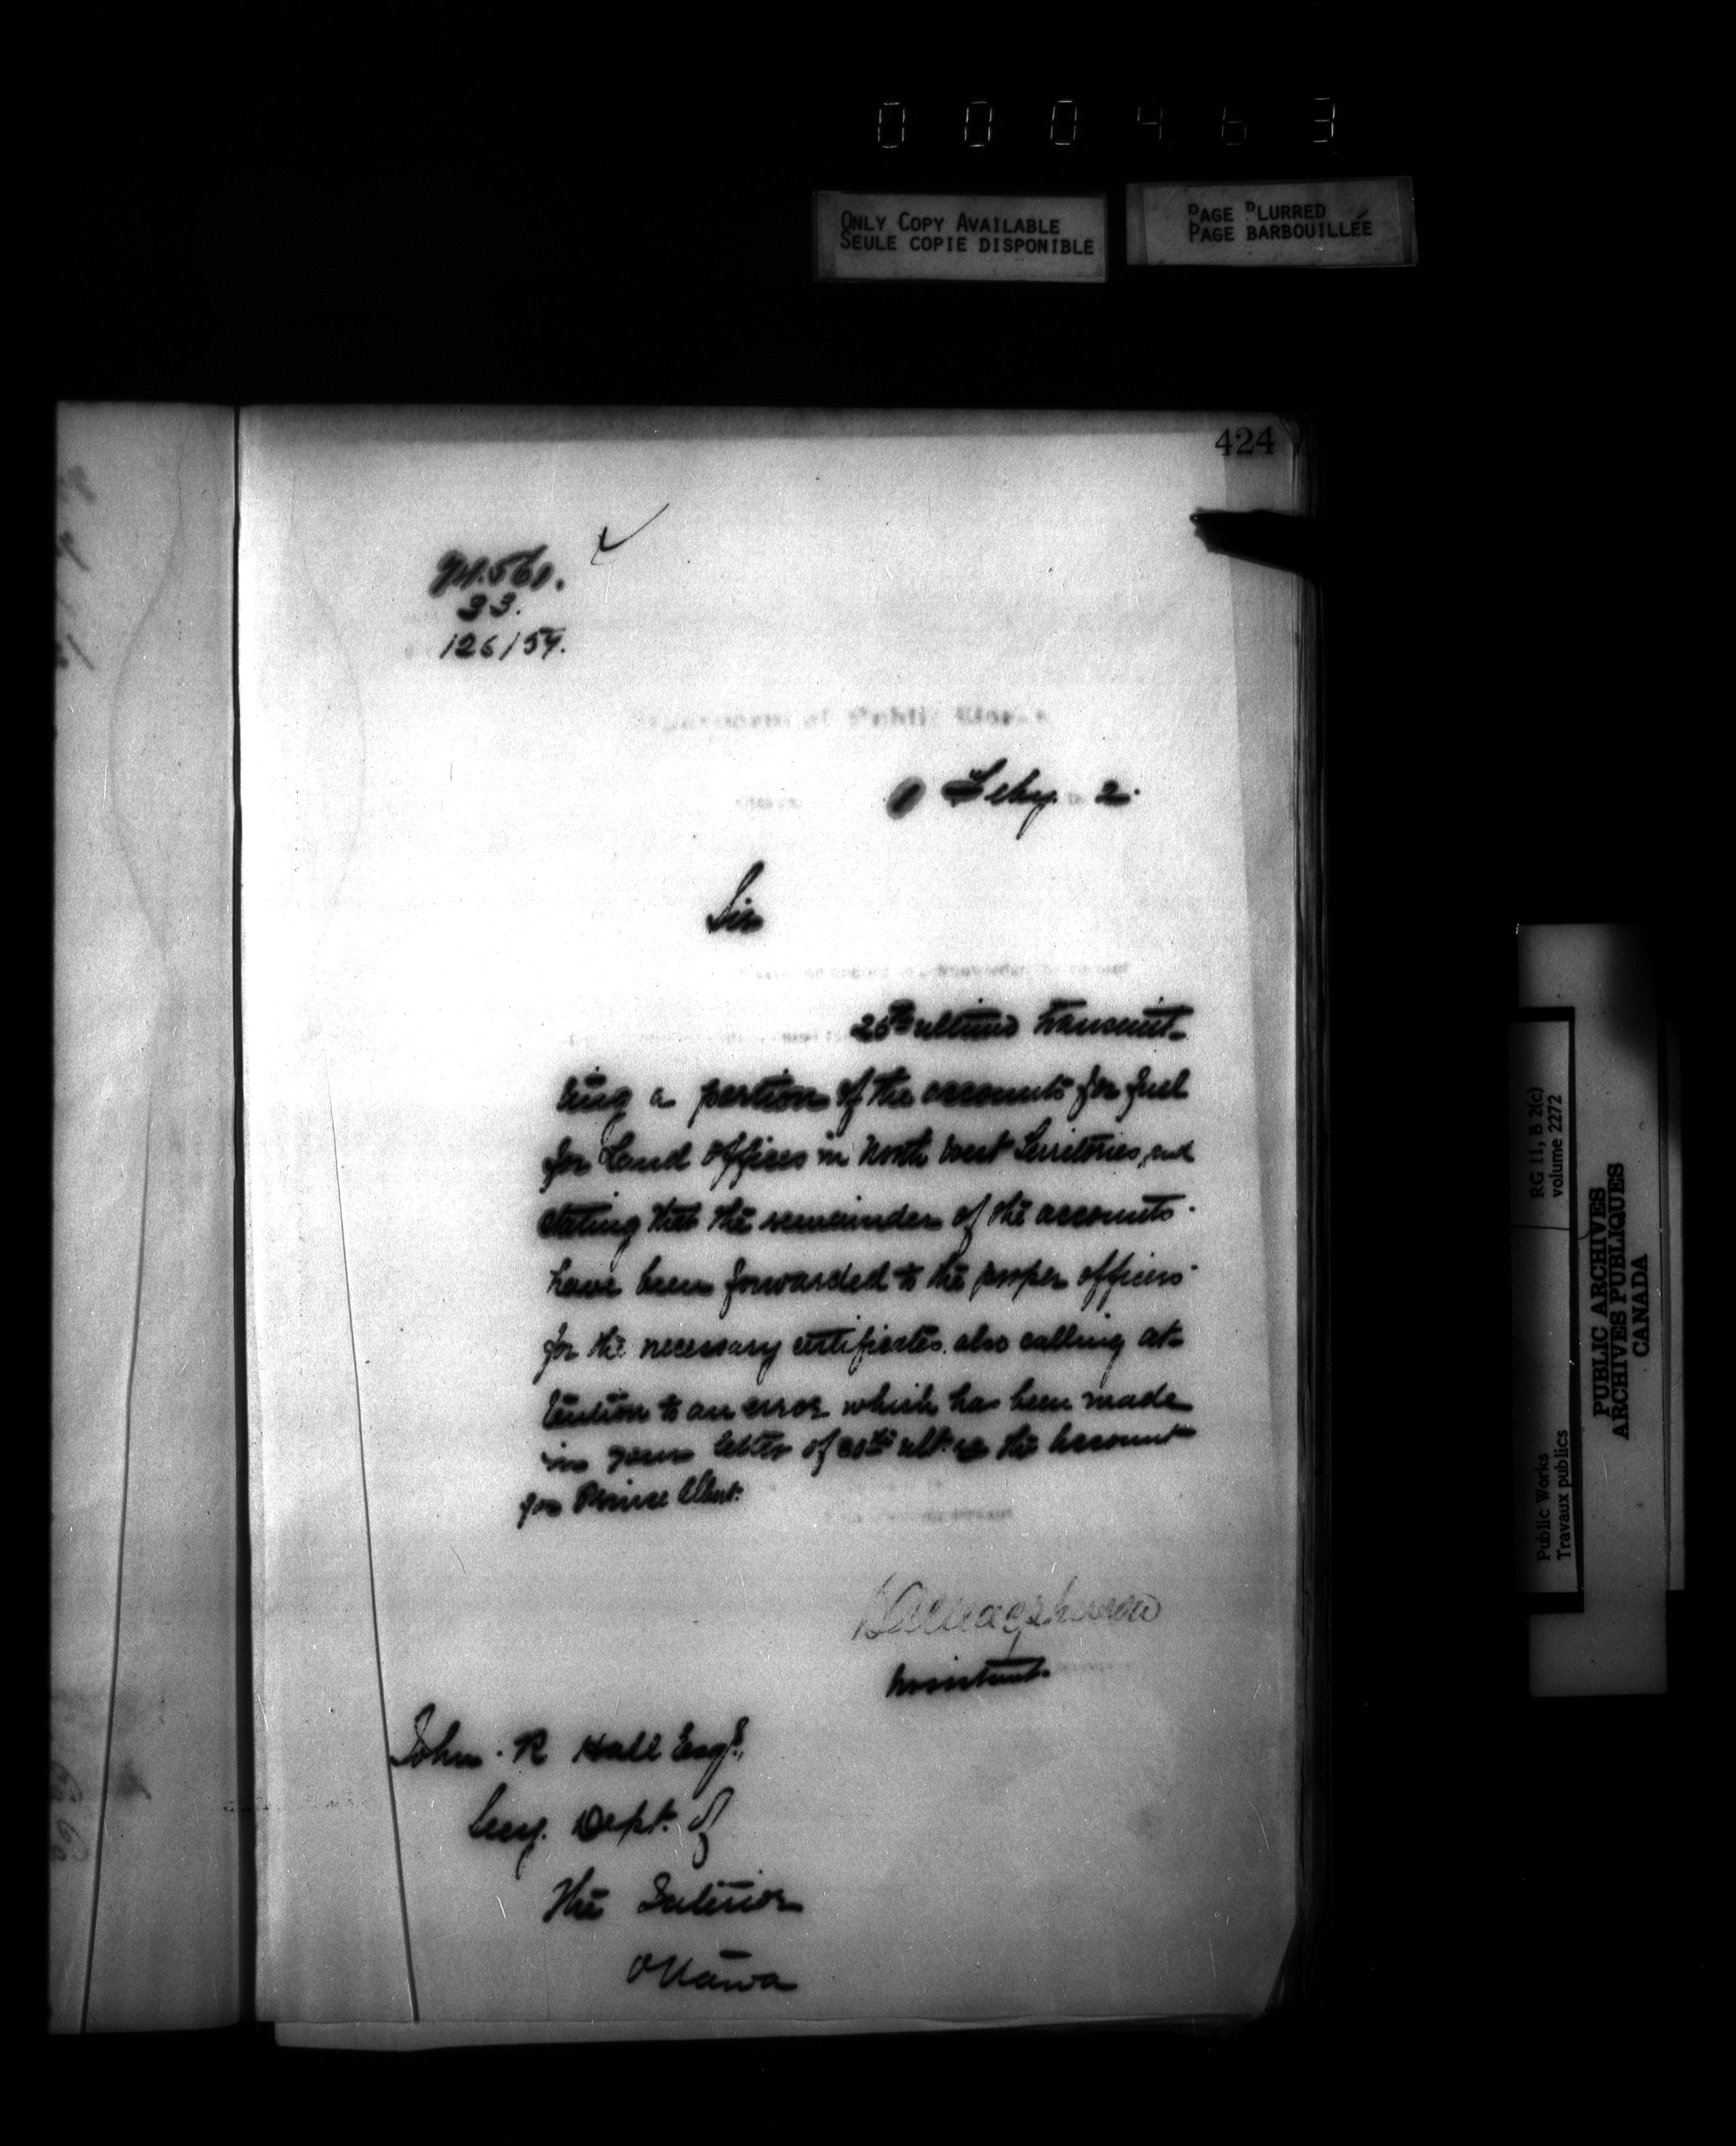 000463
ONLY COPY AVAILABLE
SEULE COPIE DISPONIBLE
PAGE BLURRED
PAGE BARBOUILLÉE
424
33.
126157.
Department of Public Works
Feby. 2.
Sir
ultimo transmit-
ting a portion of the accounts for fuel
for Land Offices in North West Territories, and
stating that the remainder of the accounts
have been forwarded to the proper officers
for the necessary certificates, also calling at-
tention to an error which has been made
in your letter of ult. re the account
for Prince Albert.
Assistant
John. R Hall Esqr.,
Secy. Dept. of
The Interior
Ottawa
RG 11, B 2(c)
volume 2272
Public Works
Travaux publics
PUBLIC ARCHIVES
ARCHIVES PUBLIQUES
CANADA